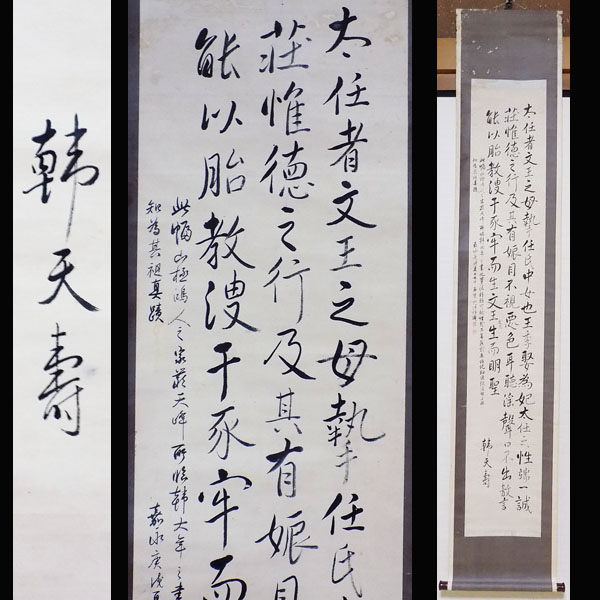 韓天壽
太任者文王之母摯任氏
莊惟德之行及其有娠目
能以胎教溲于豕牢而
此幅山極鴻人之家蔵天峰所臨韓大年之書
知為其祖真蹟
嘉永庚戌夏
太任者文王之母摯任氏中女也王季娶為妃太任之性端一誠
莊惟德之行及其有娠目不視悪色耳聽淫聲口不出敖言
能以胎教溲于豕牢而生文王生而明聖
韓天壽